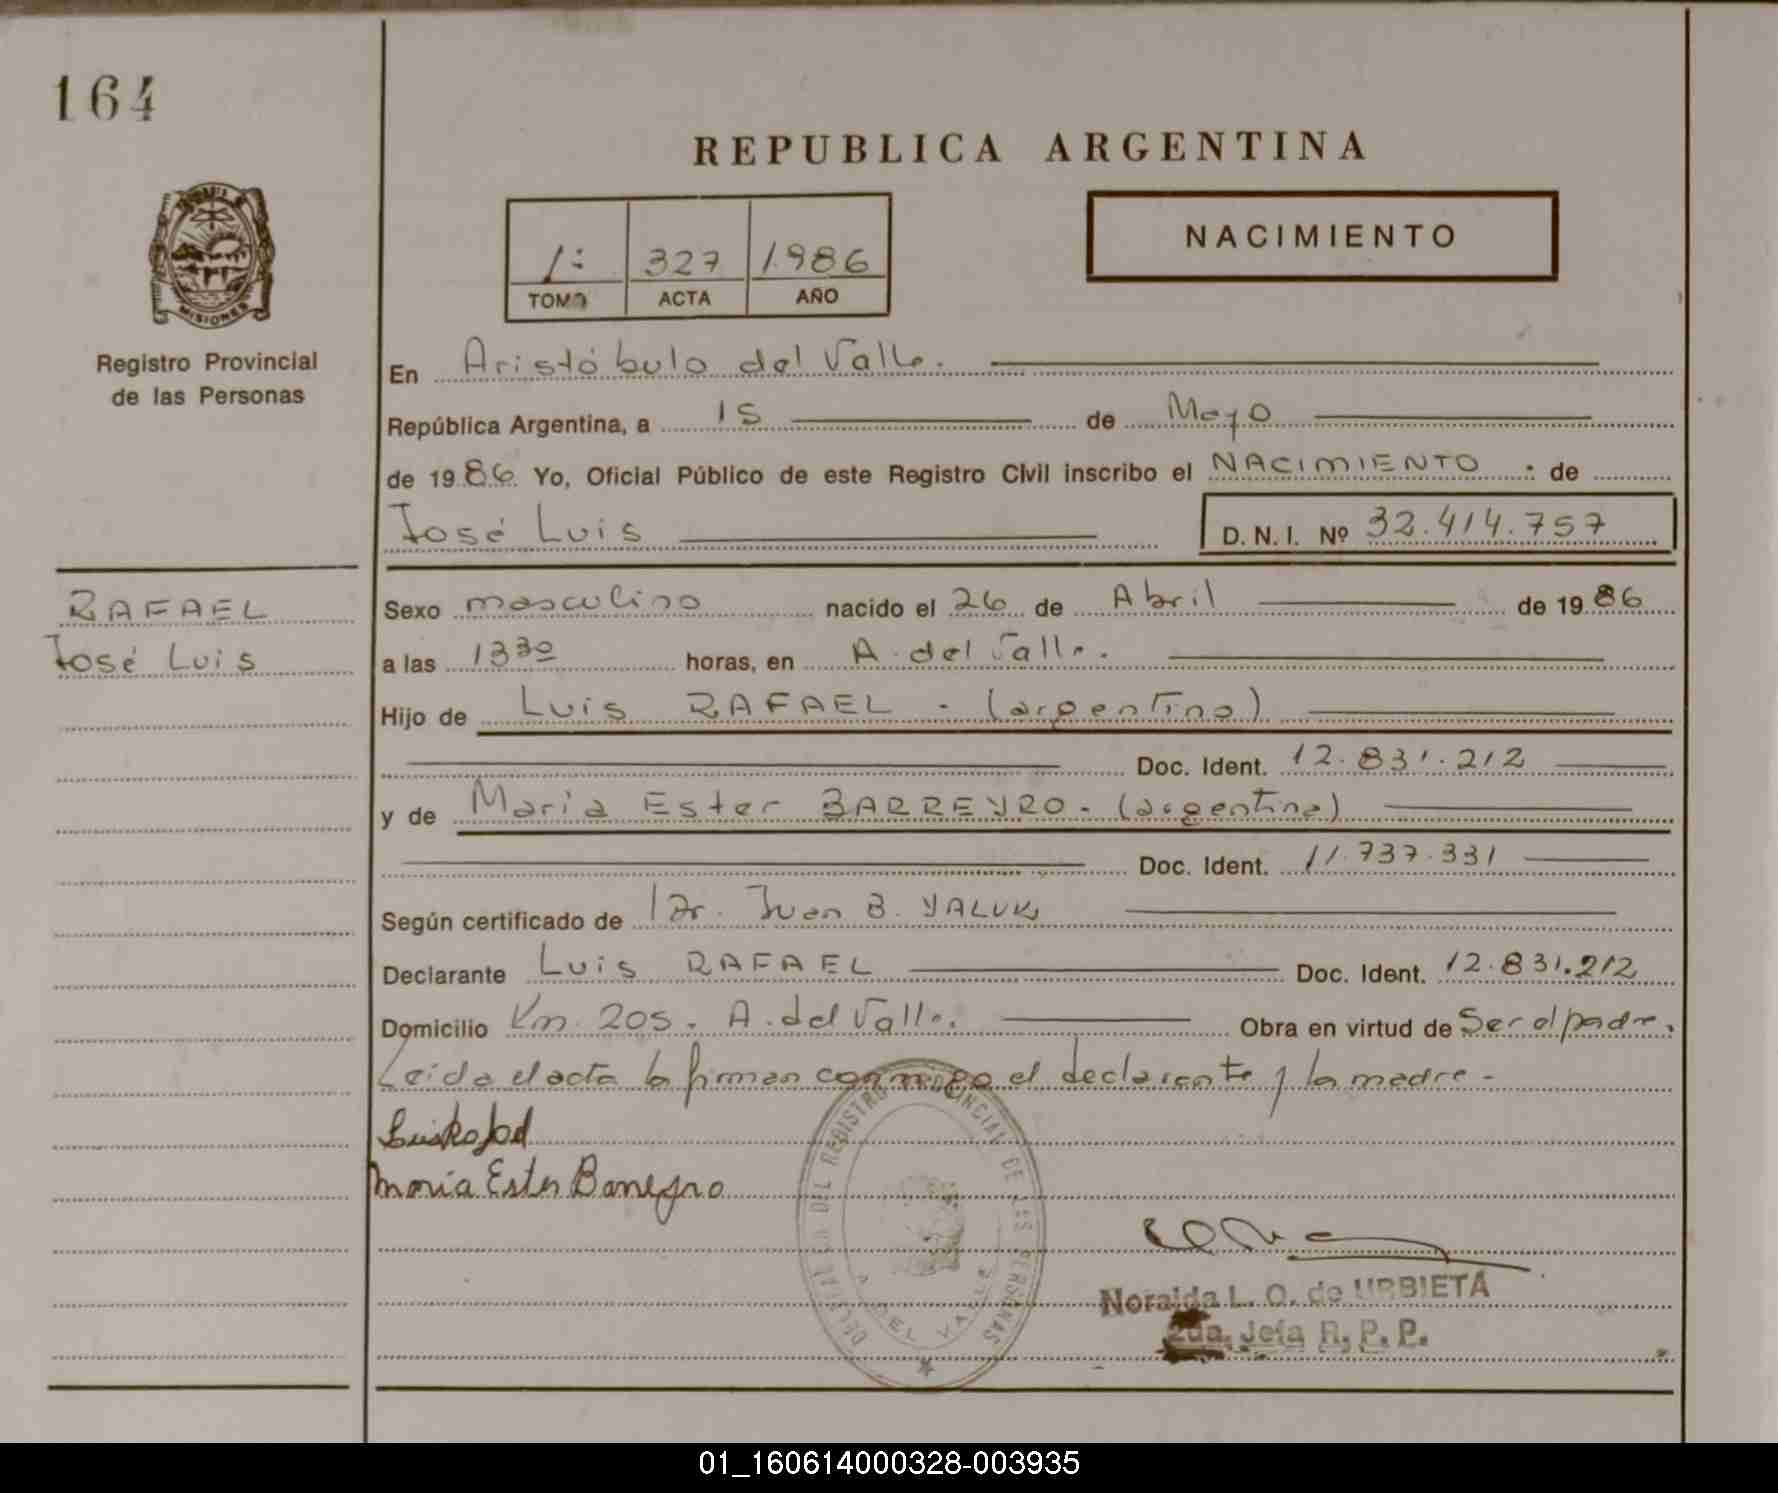 164
REPUBLICA ARGENTINA
NACIMIENTO
1: 327 1986
TOMO ACTA AÑO
MISIONES
Registro Provincial
de las Personas
En Aristóbulo del Valle.
República Argentina, a 15 de Mayo
de 1986 Yo, Oficial Público de este Registro Civil inscribo el NACIMIENTO : de
José Luis D. N. I. Nº 32.414.757
RAFAEL
José Luis
Sexo masculino nacido el 26 de Abril de 1986
a las 13 30 horas, en A. del Valle.
Hijo de Luis RAFAEL - (argentino)
Doc. Ident. 12.831.212
y de Maria Ester BARREYRO - (argentina)
Doc. Ident. 11.737.331
Según certificado de Dr. Juan B. YALUK
Declarante Luis RAFAEL Doc. Ident. 12.831.212
Domicilio Km. 205. A. del Valle. Obra en virtud de Ser el padre.
Leida el acta la firman conmigo el declarante y la madre -
Maria Ester Barreyro
REGISTRO PROVINCIAL DE LES PERSONAS
A DEL VALLE
Noralda L. O. de URBIETA
2da. Jefa R. P. P.
01_160614000328-003935